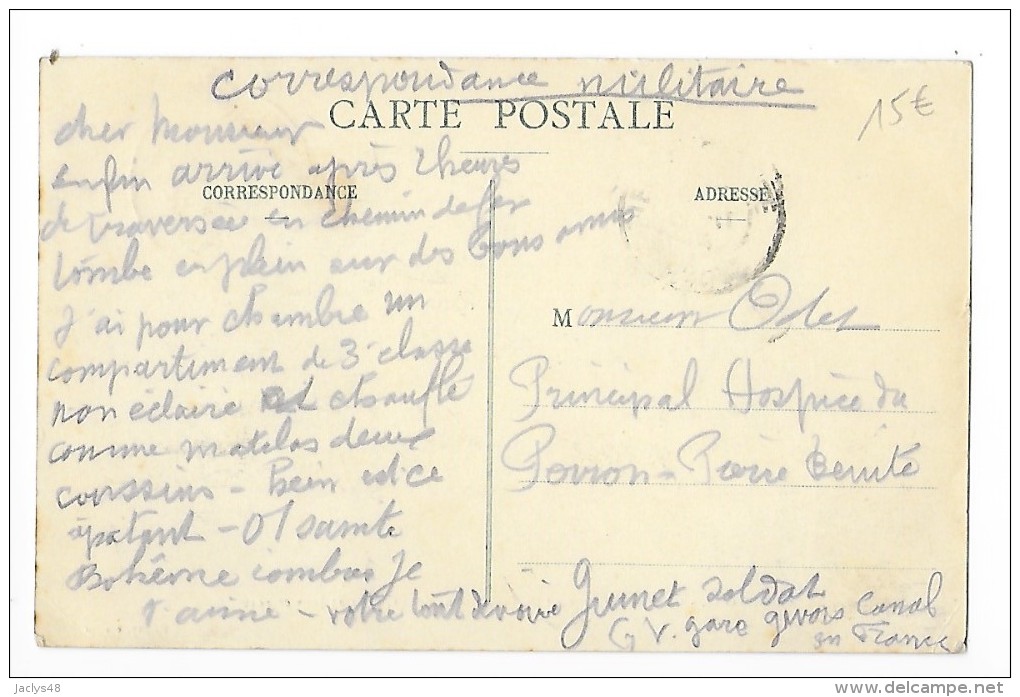 correspondance militaire
CARTE POSTALE
15€
cher Monsieur
enfin arrivé après 2 heures
CORRESPONDANCE
ADRESSE
de traversée en chemin de fer
tombe en plein sur des bons amis
J'ai pour chambre un
compartiment de 3e classe
non éclairé et chauffé
comme matelas deux
coussins - hein est ce
épatant - O! sainte
Bohême combien je
t'aime - votre tout dévoué Junet soldat
G V. gare givors Canal
en France
Monsieur
Principal Hospice du
Perron - Pierre Bénite
jaclys48
delcampe.net